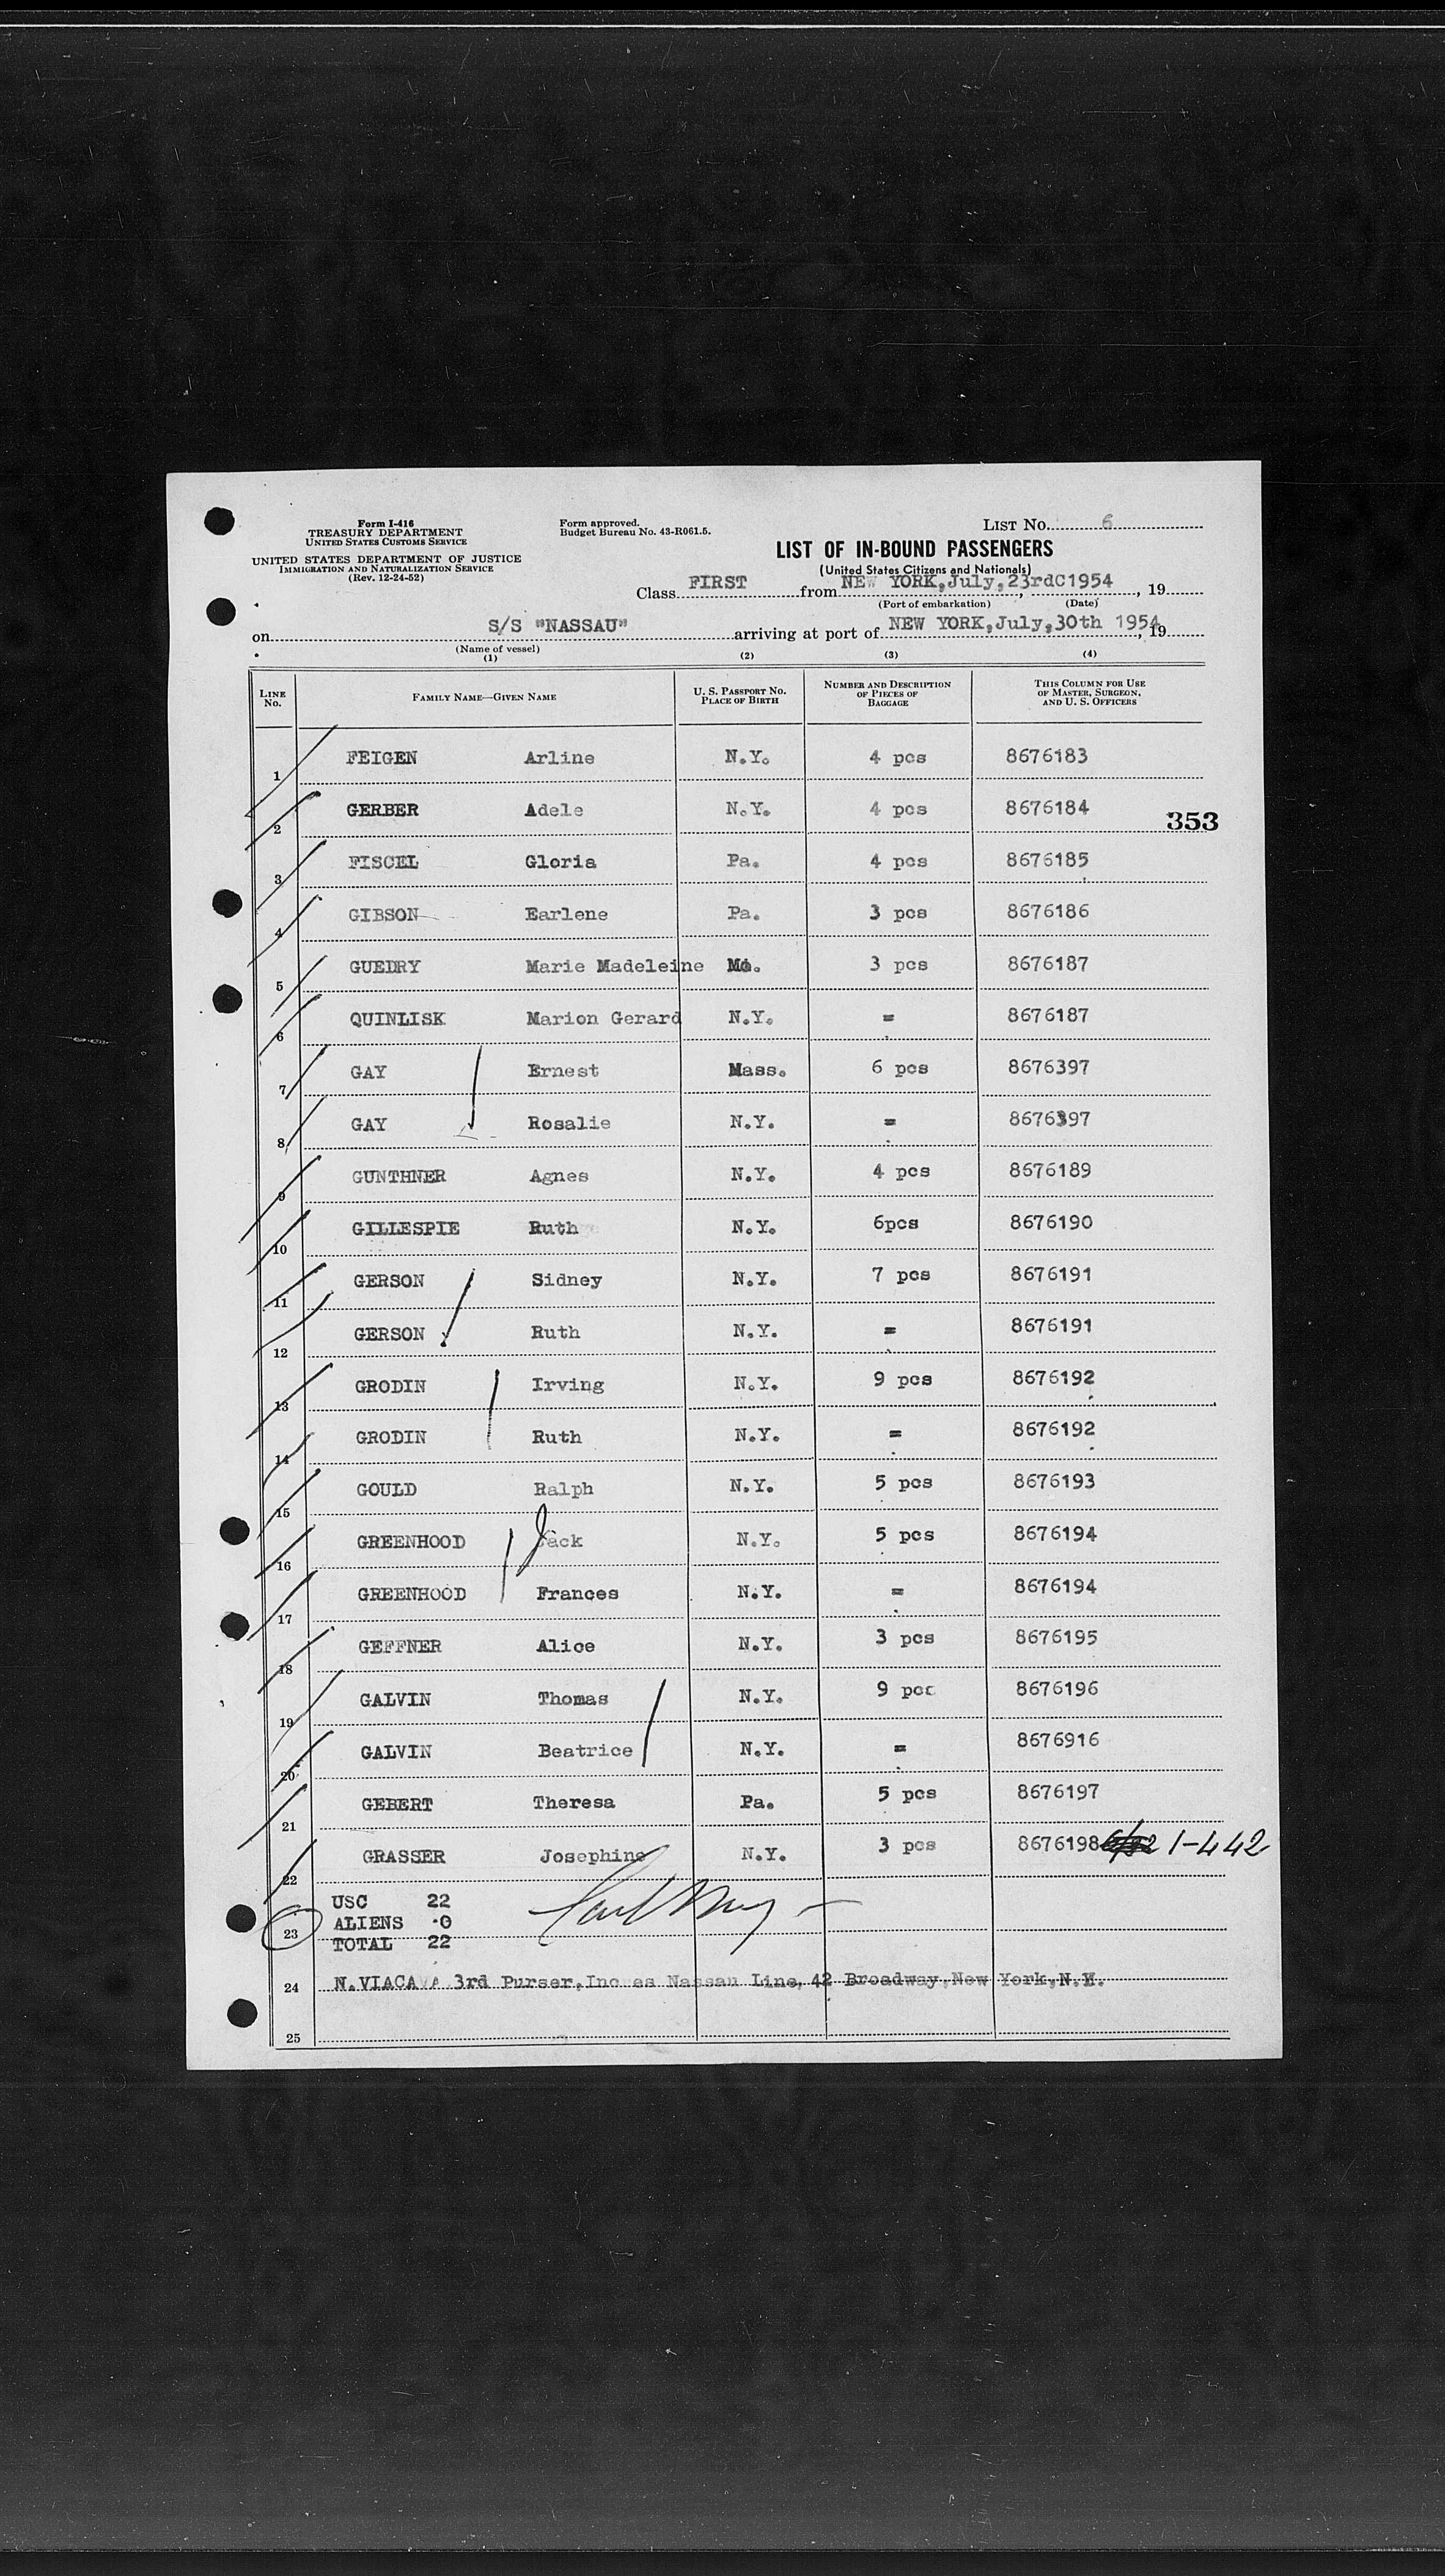 Form I-416
TREASURY DEPARTMENT
UNITED STATES CUSTOMS SERVICE
UNITED STATES DEPARTMENT OF JUSTICE
IMMIGRATION AND NATURALIZATION SERVICE
(Rev. 12-24-52)
Form approved.
Budget Bureau No. 43-R061.5.
LIST NO. 6
LIST OF IN-BOUND PASSENGERS
(United States Citizens and Nationals)
Class FIRST from NEW YORK,July,23rdC1954, 19
(Port of embarkation) (Date)
on S/S "NASSAU" arriving at port of NEW YORK,July,30th 1954, 19
(Name of vessel)
(1) (2) (3) (4)
LINE NO. FAMILY NAME—GIVEN NAME U. S. PASSPORT NO. PLACE OF BIRTH NUMBER AND DESCRIPTION OF PIECES OF BAGGAGE THIS COLUMN FOR USE OF MASTER, SURGEON, AND U. S. OFFICERS
1 FEIGEN Arline N.Y. 4 pcs 8676183
2 GERBER Adele N.Y. 4 pcs 8676184
353
3 FISCEL Gloria Pa. 4 pcs 8676185
4 GIBSON Earlene Pa. 3 pcs 8676186
5 GUEDRY Marie Madeleine 3 pcs 8676187
6 QUINLISK Marion Gerard N.Y. = 8676187
7 GAY Ernest Mass. 6 pcs 8676397
8 GAY Rosalie N.Y. = 8676397
9 GUNTHNER Agnes N.Y. 4 pcs 8676189
10 GILLESPIE Ruth N.Y. 6pcs 8676190
11 GERSON Sidney N.Y. 7 pcs 8676191
12 GERSON Ruth N.Y. = 8676191
13 GRODIN Irving N.Y. 9 pcs 8676192
14 GRODIN Ruth N.Y. = 8676192
15 GOULD Ralph N.Y. 5 pcs 8676193
16 GREENHOOD Jack N.Y. 5 pcs 8676194
17 GREENHOOD Frances N.Y. = 8676194
18 GEFFNER Alice N.Y. 3 pcs 8676195
19 GALVIN Thomas N.Y. 9 pcs 8676196
20 GALVIN Beatrice N.Y. = 8676916
21 GEBERT Theresa Pa. 5 pcs 8676197
22 GRASSER Josephine N.Y. 3 pcs 8676198 1-442
USC 22
ALIENS 0
23 TOTAL 22
24 N.VIACAVA 3rd Purser, Nassau Line, 42 Broadway,New York,N.Y.
25